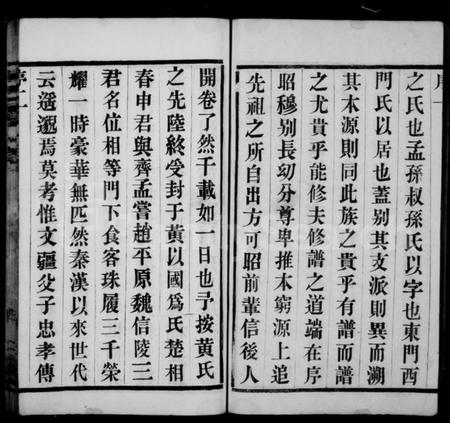 序一
之氏也孟孫叔孫氏以字也東門西
門氏以居也蓋别其支派則異而溯
其本源則同此族之貴乎有譜而譜
之尤貴乎能修夫修譜之道端在序
昭穆别長幼分尊卑推本窮源上追
先祖之所自出方可昭前輩信後人
開卷了然千載如一日也予按黄氏
之先陸終受封于黄以國爲氏楚相
春申君與齊孟嘗趙平原魏信陵三
君名位相等門下食客珠履三千榮
耀一時豪華無匹然秦漢以來世代
云遥邈焉莫考惟文疆父子忠孝傳
序二